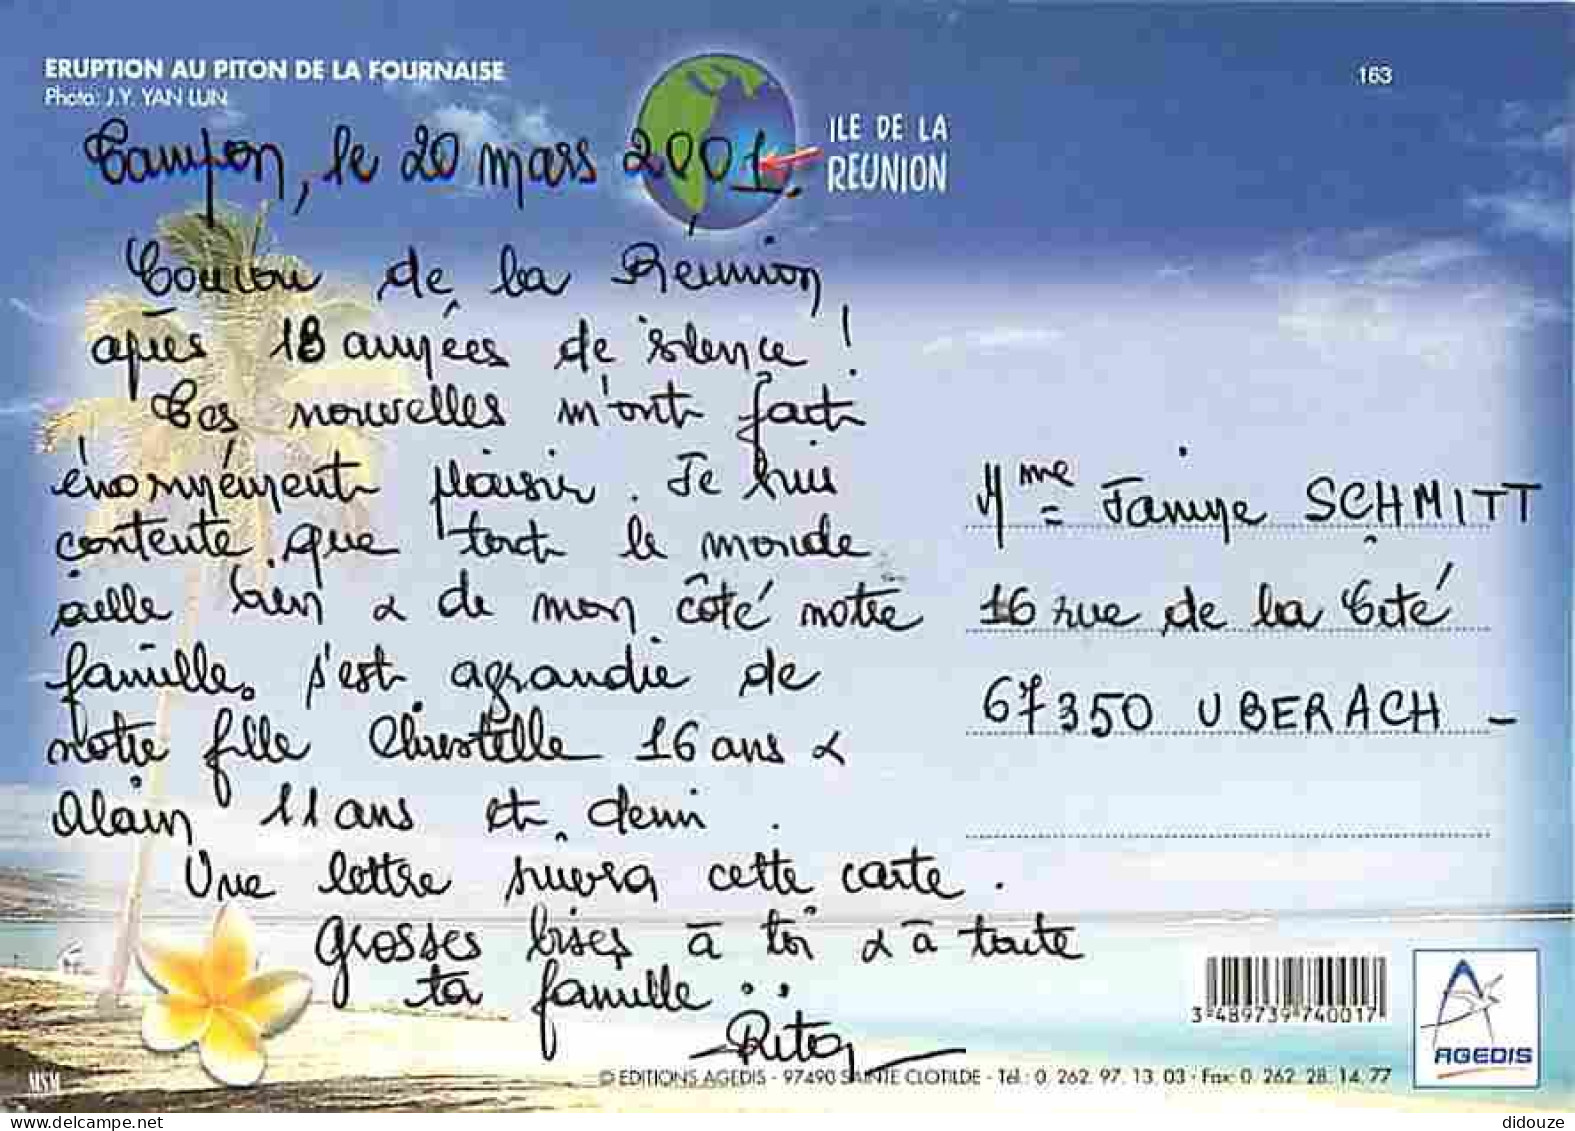 ERUPTION AU PITON DE LA FOURNAISE
Photo: J.Y. YAN LUN
163
ILE DE LA
REUNION
Tampon, le 20 mars 2001.
Coucou de la Réunion
après 18 années de silence !
Tes nouvelles m'ont fait
énormément plaisir. Je suis
contente que tout le monde
aille bien & de mon côté notre
famille s'est agrandie de
notre fille Christelle 16 ans &
Alain 11 ans et demi.
Une lettre suivra cette carte.
Grosses bises à toi & à toute
ta famille..
Rita
Mme Janine SCHMITT
16 rue de la Cité
67350 UBERACH -
3 489739 740017
AGEDIS
MSM
© EDITIONS AGEDIS - 97490 SAINTE CLOTILDE - Tél.: 0. 262. 97. 13. 03 - Fax: 0. 262. 28. 14. 77
didouze